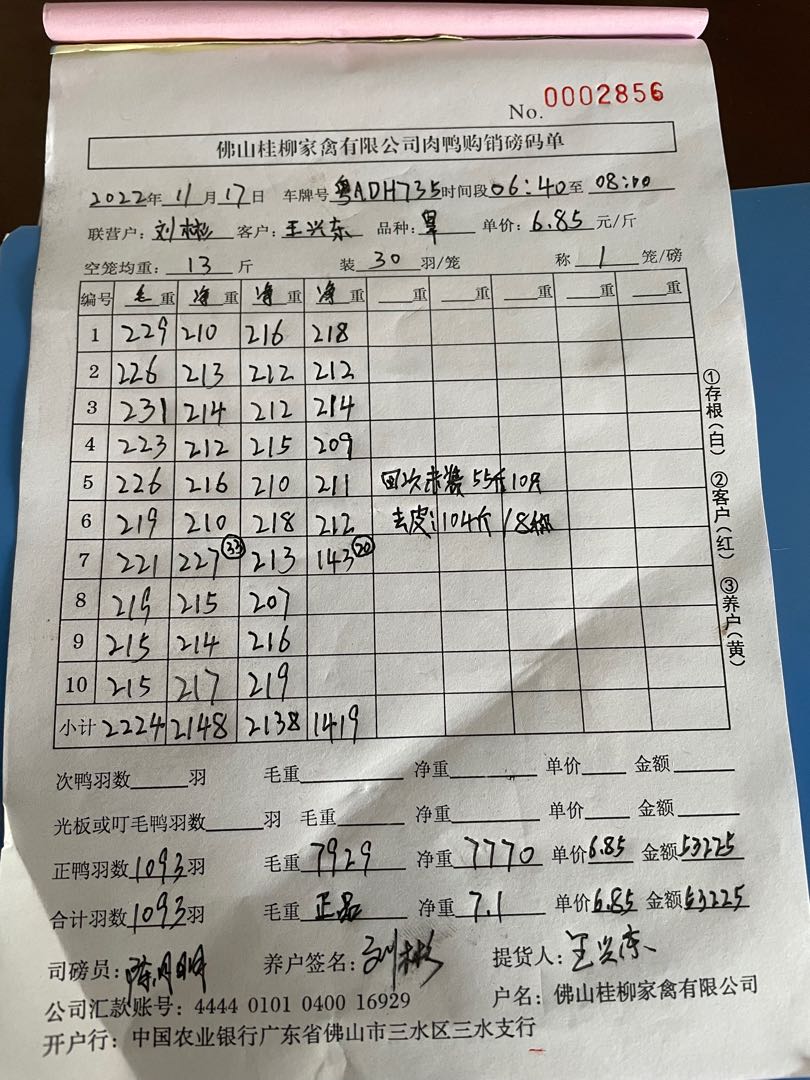 No. 0002856
佛山桂柳家禽有限公司肉鸭购销磅码单
2022年 11月17日 车牌号 粤ADH735 时间段 06:40至 08:10
联营户: 刘彬 客户: 王兴东 品种: 单价: 6.85 元/斤
空笼均重: 13 斤 装 30 羽/笼 称 1 笼/磅
编号 毛重 净重 净重 净重 重 重 重 重 重
1 229 210 216 218
2 226 213 212 212
3 231 214 212 214
4 223 212 215 209
5 226 216 210 211 55斤10只
6 219 210 218 212 去皮:104斤/8
7 221 227 33 213 143 20
8 219 215 207
9 215 214 216
10 215 217 219
小计 2224 2148 2138 1419
次鸭羽数 羽 毛重 净重 单价 金额
光板或叮毛鸭羽数 羽 毛重 净重 单价 金额
正鸭羽数 1093羽 毛重 7929 净重 7770 单价 6.85 金额 53225
合计羽数 1093羽 毛重 正品 净重 7.1 单价 6.85 金额 53225
司磅员: 养户签名: 刘彬 提货人: 王兴东
公司汇款账号: 4444 0101 0400 16929 户名: 佛山桂柳家禽有限公司
开户行: 中国农业银行广东省佛山市三水区三水支行
①存根(白) ②客户(红) ③养户(黄)